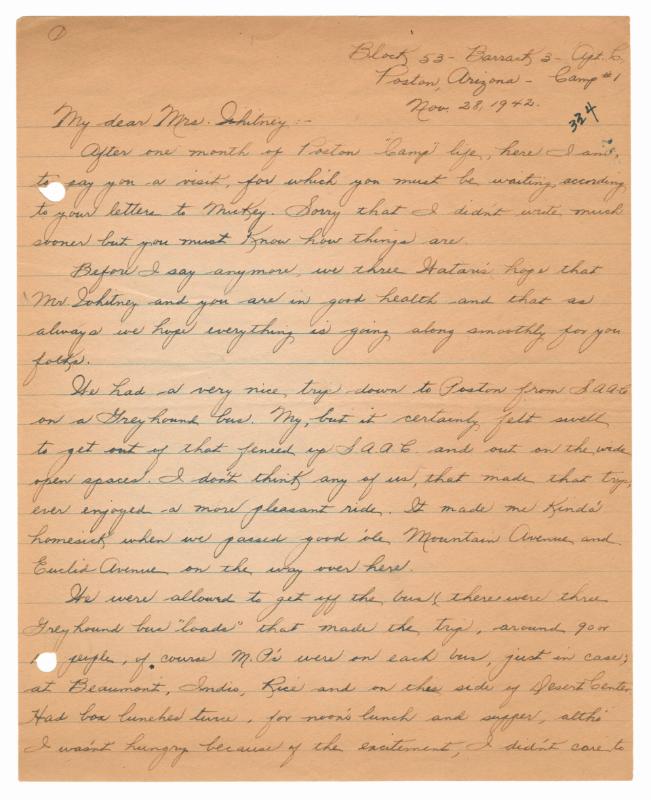 ①
Block 53 - Barrack 3 - Apt. C.
Poston, Arizona - Camp #1
Nov. 28, 1942.
324
My dear Mrs. Whitney :-
After one month of Poston "Camp" life, here I am,
to say you a visit, for which you must be waiting, according
to your letters to Mickey. Sorry that I didn't write much
sooner but you must know how things are.
Before I say anymore, we three Hataris hope that
Mr Whitney and you are in good health and that as
always we hope everything is going along smoothly for you
folks.
We had a very nice trip down to Poston from SAAC
on a Greyhound bus. My, but it certainly felt swell
to get out of that fenced up SAAC and out on the wide
open spaces. I don't think any of us, that made that trip,
ever enjoyed a more pleasant ride. It made me kinda'
homesick when we passed good 'ole Mountain Avenue and
Euclid Avenue on the way over here.
We were allowed to get off the bus ( there were three
Greyhound bus "loads" that made the trip, around 90 or
people, of course M.P's were on each bus, just in case;
at Beaumont, Indio, Rice and on this side of Desert Center.
Had box lunches twice, for noon's lunch and supper, altho'
I wasn't hungry because of the excitement, I didn't care to